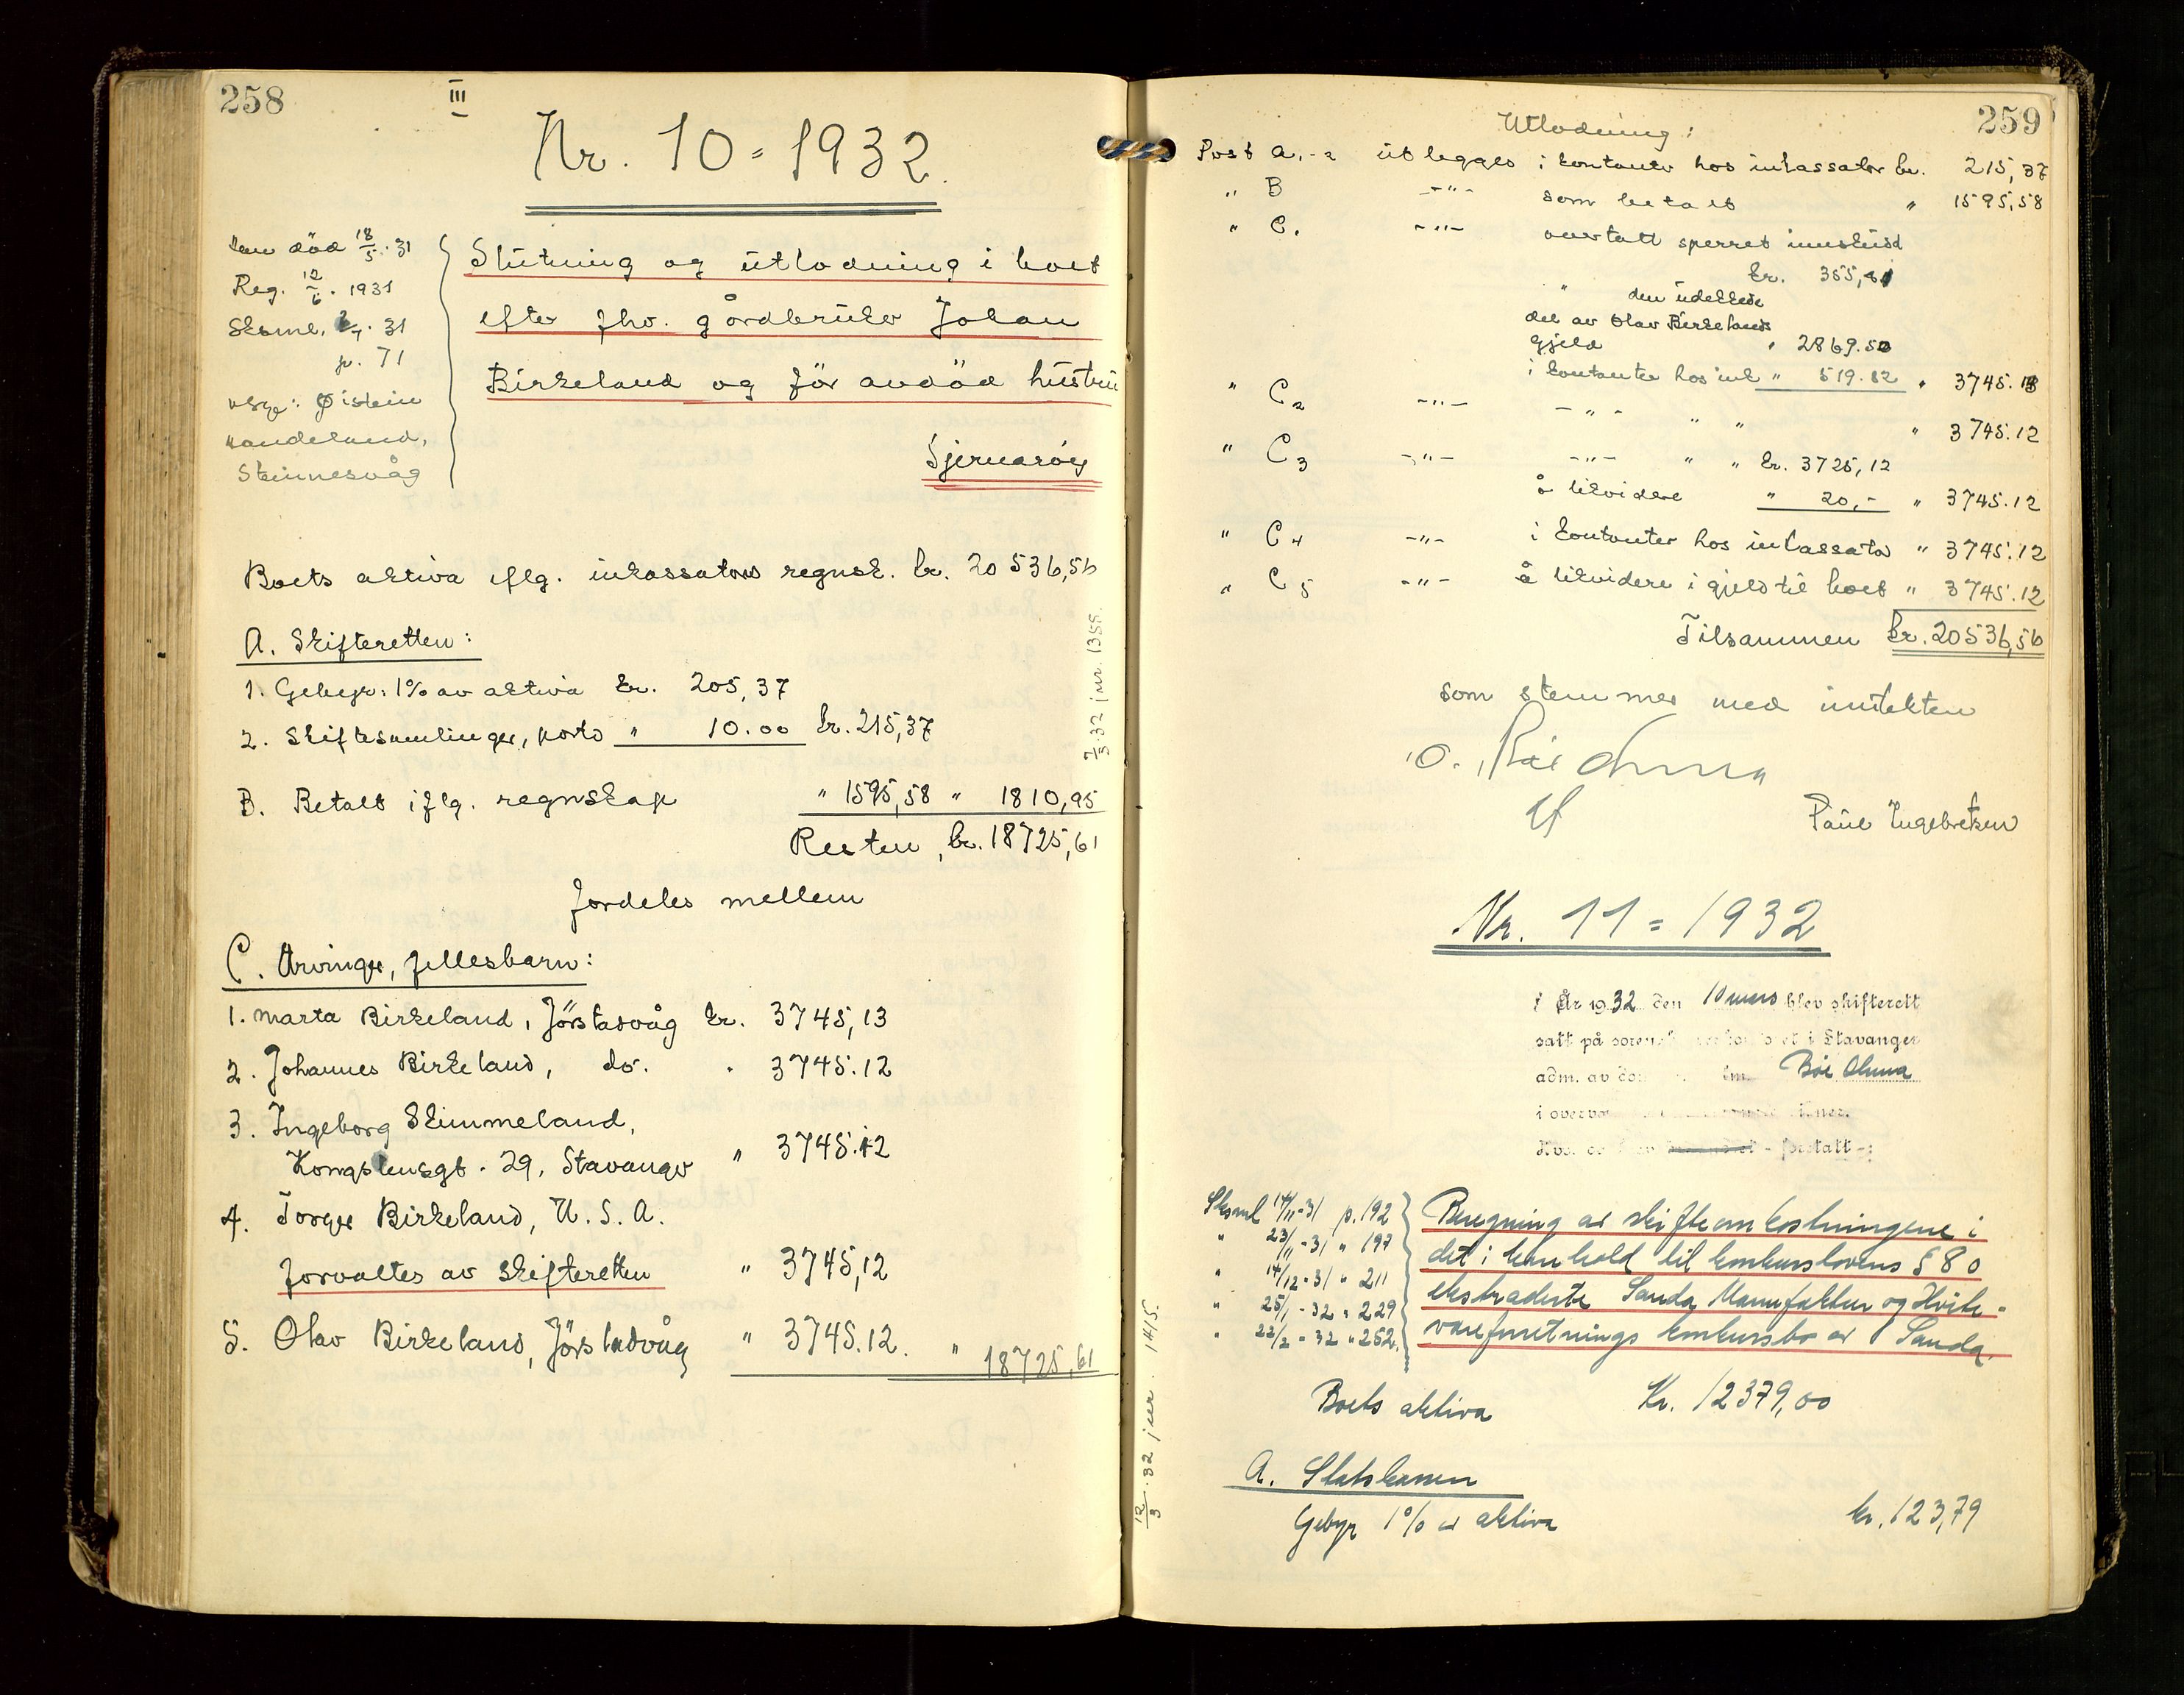 258
III
Nr. 10 = 1932.
død 18/5. 31
Reg. 12/6. 1931
Sksml. 2/7. 31
p. 71
Øistein
Steinnesvåg
Slutning og utlodning i boet
efter fhv. gårdbruker Johan
Birkeland og før avdød hustru
Sjernarøy
Boets aktiva iflg. inkassators regnsk. kr. 20 536,56
A. Skifteretten:
1. Gebyr: 1% av aktiva kr. 205,37
2. Skiftesamlinger, porto " 10.00 kr. 215,37
B. Betalt iflg. regnskap " 1595,58 " 1810,95
Resten, kr. 18725,61
fordeles mellem
C. Arvinger, fellesbarn:
1. Marta Birkeland, Jørstadvåg kr. 3745,13
2. Johannes Birkeland, do. " 3745.12
3. Ingeborg Skimmeland,
Kongstensgt. 29, Stavanger " 3745.12
4. Torger Birkeland, U. S. A.
forvaltes av skifteretten " 3745,12
5. Olav Birkeland, Jørstadvåg " 3745.12. " 18725,61
7/3.32 jnr. 1355.
259
Utlodning:
Post A. 1-2 utlegges i kontanter hos inkassator kr. 215,37
" B -"- som betalt " 1595,58
" C. 1 -"- overtatt sperret innskudd
kr. 355,81
" den udekkede
del av Olav Birkelands
gjeld " 2869.50
i kontanter hos ink " 519.82 " 3745.13
" C 2 -"- -"- " " " 3745.12
" C 3 -"- -"- " " kr. 3725,12
å likvidere " 20,- " 3745.12
" C 4 -"- i kontanter hos inkassator " 3745.12
" C 5 -"- å likvidere i gjeld til boet " 3745.12
Tilsammen kr. 20536,56
som stemmer med inntekten
Paul Ingebretsen
Nr. 11 = 1932
År 1932 den 10 mars blev skifterett
satt på i Stavanger
adm. av
- foretatt -:
Sksml 14/11-31 p. 192
" 23/11-31 " 197
" 14/12-31 " 211
" 25/1-32 " 229
" 22/2-32 " 252.
Beregning av skifteomkostningene i
det i henhold til konkurslovens § 80
ekstraderte Sanda Manufaktur og Hvite-
vareforretnings konkursbo av Sanda.
Boets aktiva Kr. 12379,00
A. Statskassen
Gebyr 1% av aktiva kr. 123,79
12/3.32 jnr. 1415.